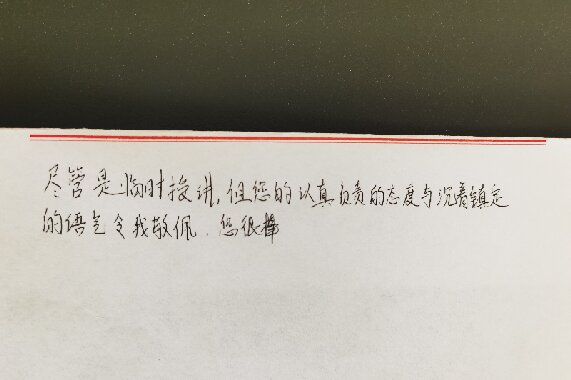 尽管是临时授讲，但您的认真负责的态度与沉着镇定
的语气令我敬佩．您很棒